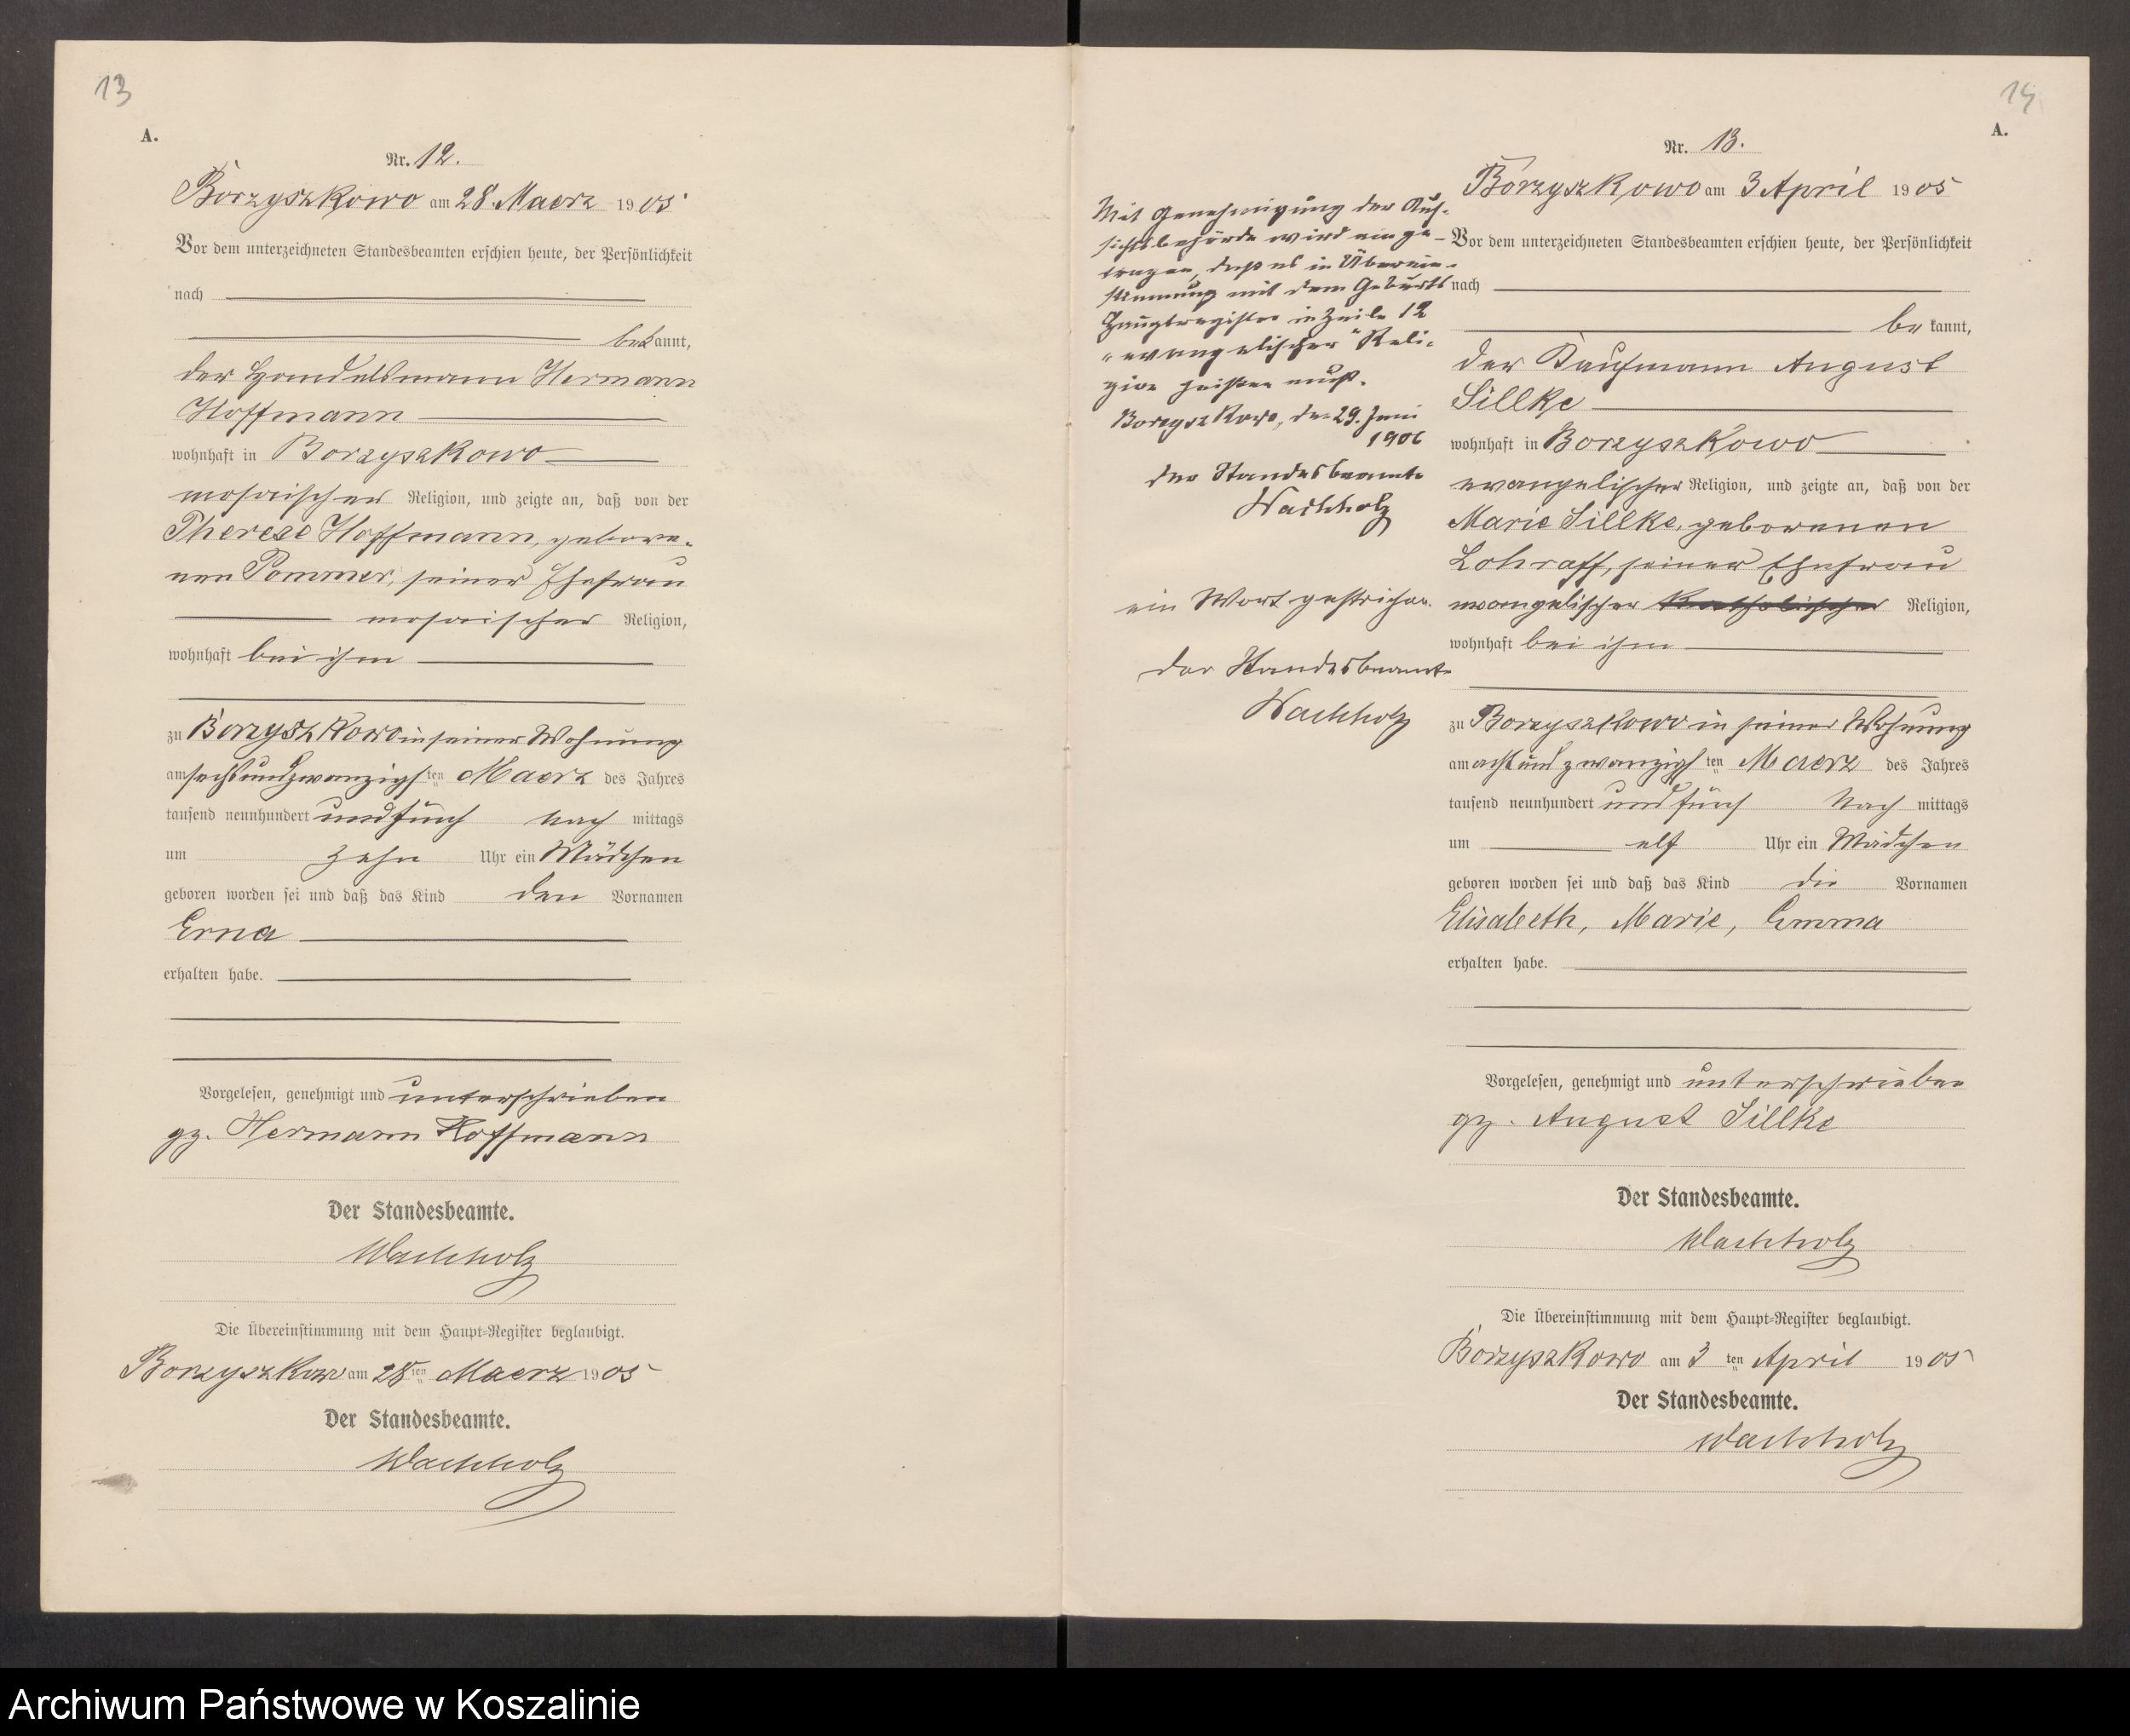 13
A.
Nr. 12.
Borzyszkowo am 28. Maerz 1905
Vor dem unterzeichneten Standesbeamten erschien heute, der Persönlichkeit
nach
bekannt,
der Handelsmann Hermann
Hoffmann
wohnhaft in Borzyszkowo
mosaischer Religion, und zeigte an, daß von der
Therese Hoffmann, gebore-
nen Pommer, seiner Ehefrau
mosaischer Religion,
wohnhaft bei ihm
zu Borzyszkowo in seiner Wohnung
am sechsundzwanzigsten Maerz des Jahres
tausend neunhundert und fünf nach mittags
um zehn Uhr ein Mädchen
geboren worden sei und daß das Kind den Vornamen
Erna
erhalten habe.
Vorgelesen, genehmigt und unterschrieben
gz. Hermann Hoffmann
Der Standesbeamte.
Wachholz
Die Übereinstimmung mit dem Haupt-Register beglaubigt.
Borzyszkowo am 28ten Maerz 1905
Der Standesbeamte.
Wachholz
14
A.
Nr. 13.
Borzyszkowo am 3 April 1905
Vor dem unterzeichneten Standesbeamten erschien heute, der Persönlichkeit
nach
bekannt,
der Kaufmann August
Sillke
wohnhaft in Borzyszkowo
evangelischer Religion, und zeigte an, daß von der
Marie Sillke, geborenen
Lohraff, seiner Ehefrau
evangelischer katholischer Religion,
wohnhaft bei ihm
zu Borzyszkowo in seiner Wohnung
am acht und zwanzigsten Maerz des Jahres
tausend neunhundert und fünf Nach mittags
um elf Uhr ein Mädchen
geboren worden sei und daß das Kind die Vornamen
Elisabeth, Marie, Emma
erhalten habe.
Vorgelesen, genehmigt und unterschrieben
gz. August Sillke
Der Standesbeamte.
Wachholz
Die Übereinstimmung mit dem Haupt-Register beglaubigt.
Borzyszkowo am 3ten April 1905
Der Standesbeamte.
Wachholz
Mit Genehmigung der Auf-
sichtsbehörde wird einge-
tragen, daß es in Überein-
stimmung mit dem Geburts
Hauptregister in Zeile 12
"evangelischer" Reli-
gion heißen muß.
Borzyszkowo, den 29. Juni
1906
der Standesbeamte
Wachholz
ein Wort gestrichen.
der Standesbeamte
Wachholz
Archiwum Państwowe w Koszalinie